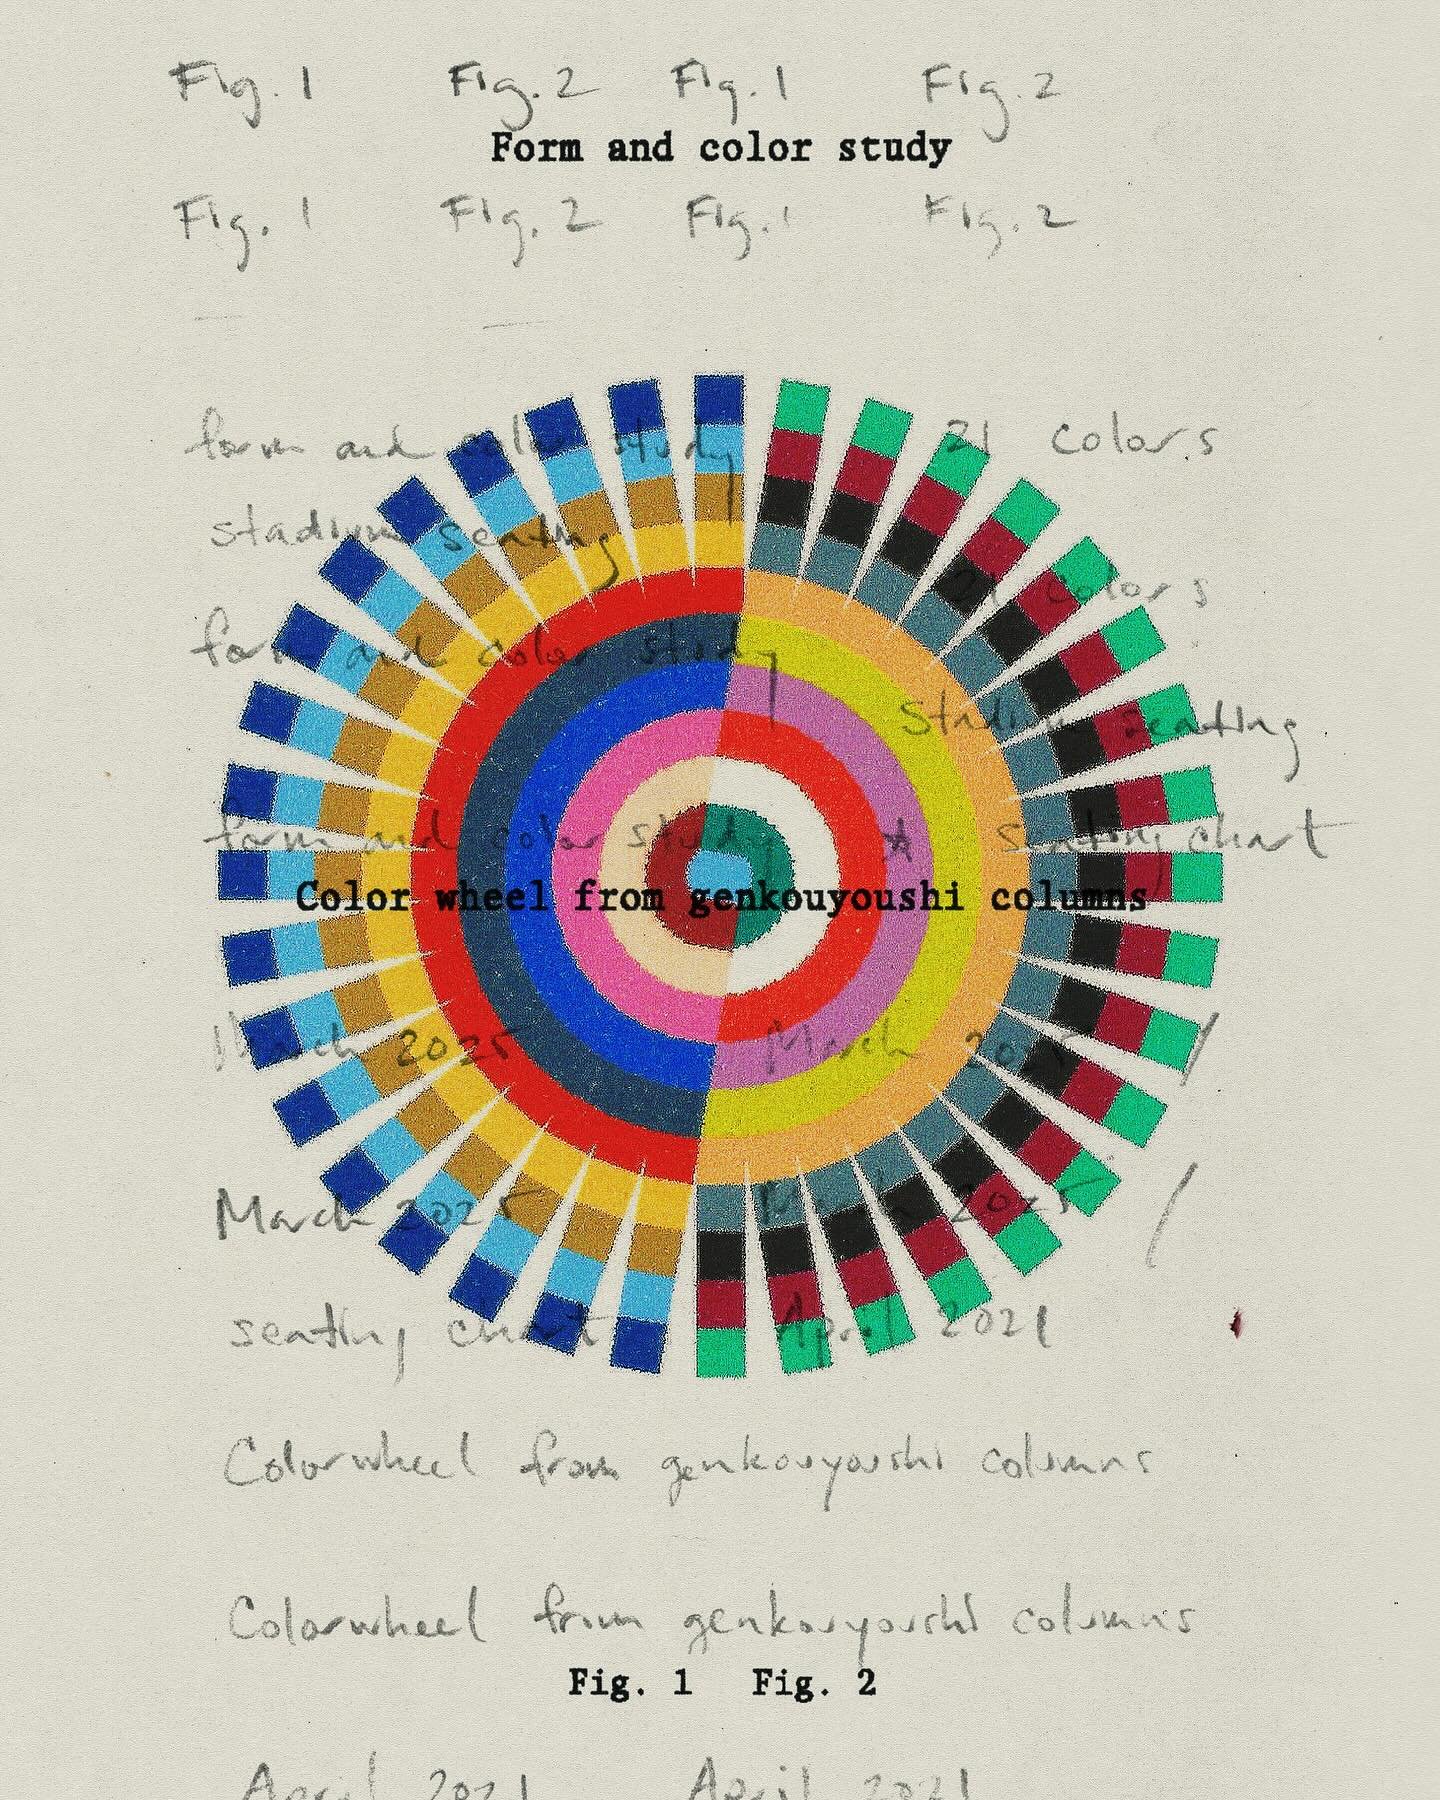 Fig. 1 Fig. 2 Fig. 1 Fig. 2
Form and color study
Fig. 1 Fig. 2 Fig. 1 Fig. 2
form and color study 21 colors
stadium seating
21 colors
form and color study
Stadium seating
form and color study A seating chart
Color wheel from genkouyoushi columns
March 2025 March 2025 /
March 2025 March 2025 /
seating chart April 2021
Colorwheel from genkouyoushi columns
Colorwheel from genkouyoushi columns
Fig. 1 Fig. 2
April 2021 April 2021